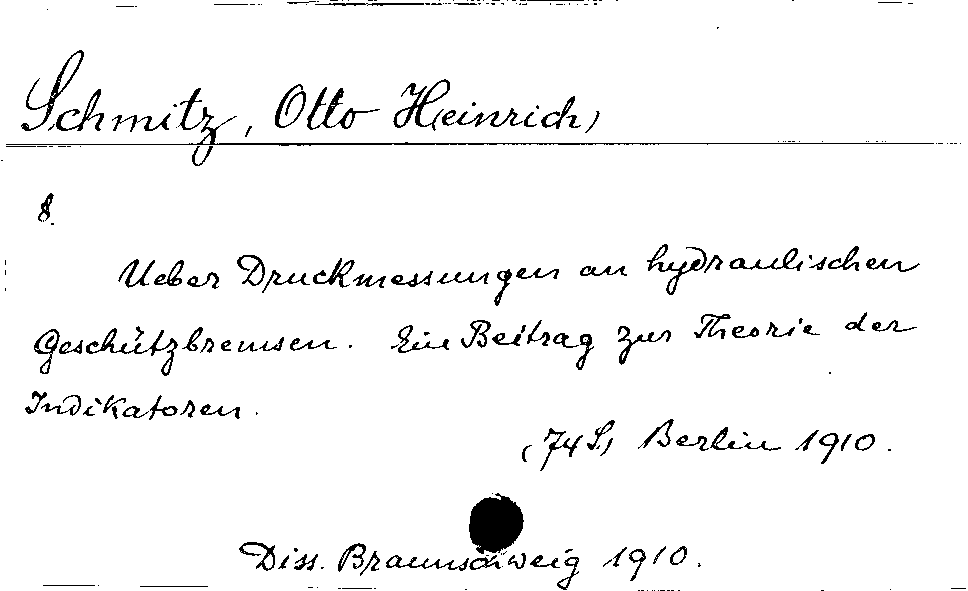 Schmitz, Otto Heinrich)
8.
Ueber Druckmessungen an hydraulischen
Geschützbremsen. Ein Beitrag zur Theorie der
Indikatoren.
(74 S.) Berlin 1910.
Diss. Braunschweig 1910.